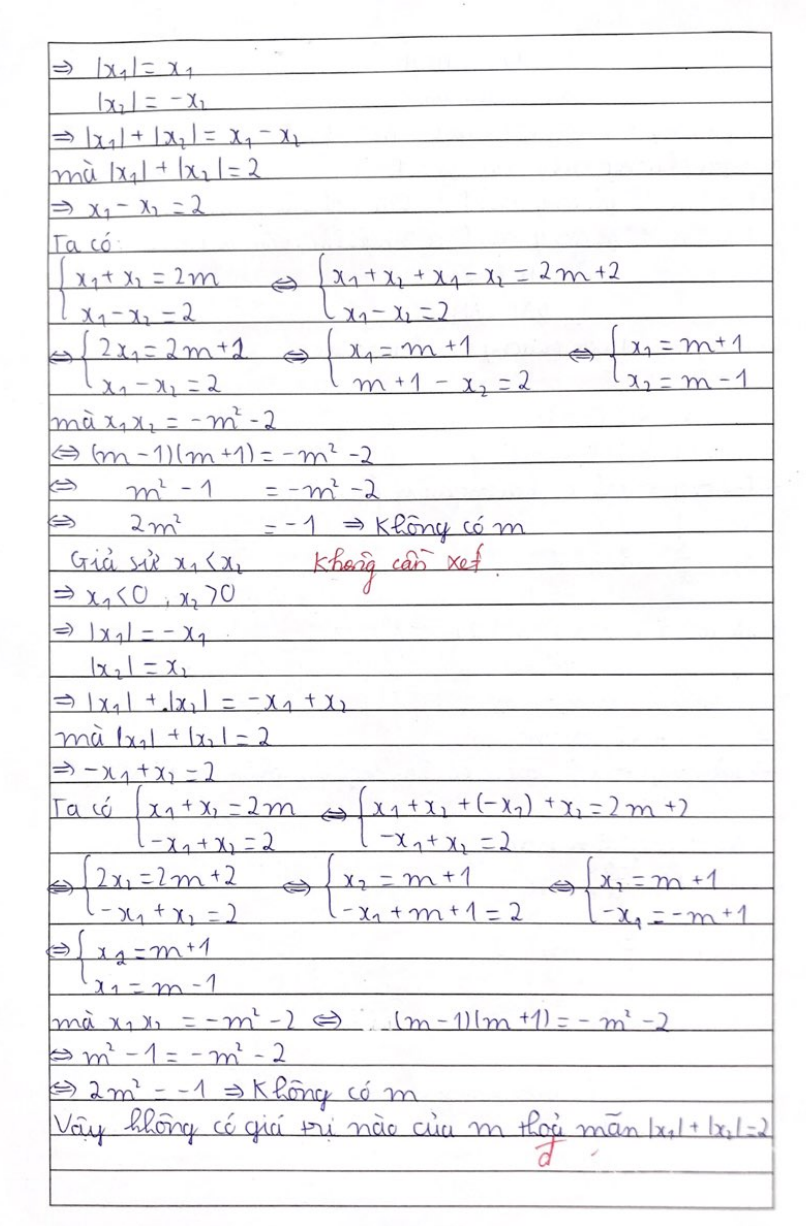 ⇒ |x₁| = x₁
|x₂| = -x₂
⇒ |x₁| + |x₂| = x₁ - x₂
mà |x₁| + |x₂| = 2
⇒ x₁ - x₂ = 2
Ta có:
{ x₁ + x₂ = 2m ⇔ { x₁ + x₂ + x₁ - x₂ = 2m + 2
x₁ - x₂ = 2 x₁ - x₂ = 2
⇔ { 2x₁ = 2m + 2 ⇔ { x₁ = m + 1 ⇔ { x₁ = m + 1
x₁ - x₂ = 2 m + 1 - x₂ = 2 x₂ = m - 1
mà x₁x₂ = -m² - 2
⇔ (m - 1)(m + 1) = -m² - 2
⇔ m² - 1 = -m² - 2
⇔ 2m² = -1 ⇒ Không có m
Giả sử x₁ < x₂ Không cần xét.
⇒ x₁ < 0 , x₂ > 0
⇒ |x₁| = -x₁
|x₂| = x₂
⇒ |x₁| + |x₂| = -x₁ + x₂
mà |x₁| + |x₂| = 2
⇒ -x₁ + x₂ = 2
Ta có { x₁ + x₂ = 2m ⇔ { x₁ + x₂ + (-x₁) + x₂ = 2m + 2
-x₁ + x₂ = 2 -x₁ + x₂ = 2
⇔ { 2x₂ = 2m + 2 ⇔ { x₂ = m + 1 ⇔ { x₂ = m + 1
-x₁ + x₂ = 2 -x₁ + m + 1 = 2 -x₁ = -m + 1
⇔ { x₂ = m + 1
x₁ = m - 1
mà x₁x₂ = -m² - 2 ⇔ (m - 1)(m + 1) = -m² - 2
⇔ m² - 1 = -m² - 2
⇔ 2m² = -1 ⇒ Không có m
Vậy không có giá trị nào của m thoả mãn |x₁| + |x₂| = 2
đ